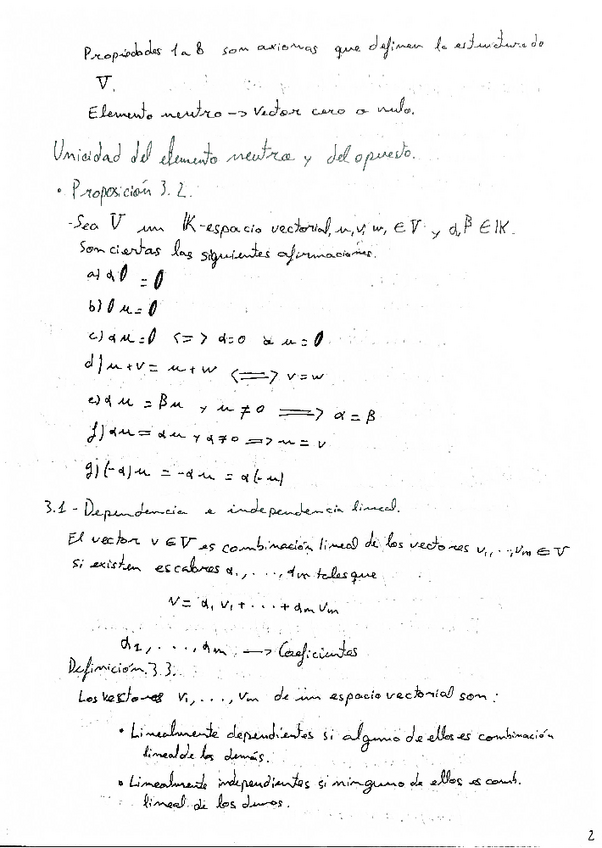 Propiedades 1 a 8 son axiomas que definen la estructura de
V.
Elemento neutro -> Vector cero o nulo.
Unicidad del elemento neutro y del opuesto.
• Proposición 3.2.
- Sea V un K-espacio vectorial, u, v, w, ∈ V y α, β ∈ K.
Son ciertas las siguientes afirmaciones.
a) α0 = 0
b) 0u = 0
c) αu = 0 <=> α=0 o u = 0
d) u+v = u+w <=> v=w
e) αu = βu y u ≠ 0 => α = β
f) αu = αu y α≠0 => u = v
g) (-α)u = -αu = α(-u)
3.1 - Dependencia e independencia lineal.
El vector v ∈ V es combinación lineal de los vectores v1, ..., vm ∈ V
si existen escalares α1, ..., αm tales que
V = α1 v1 + ... + αm vm
α1, ..., αm, -> Coeficientes
Definición 3.3.
Los vectores v1, ..., vm de un espacio vectorial son:
• Linealmente dependientes si alguno de ellos es combinación
lineal de los demás.
• Linealmente independientes si ninguno de ellos es comb.
lineal de los demas.
2